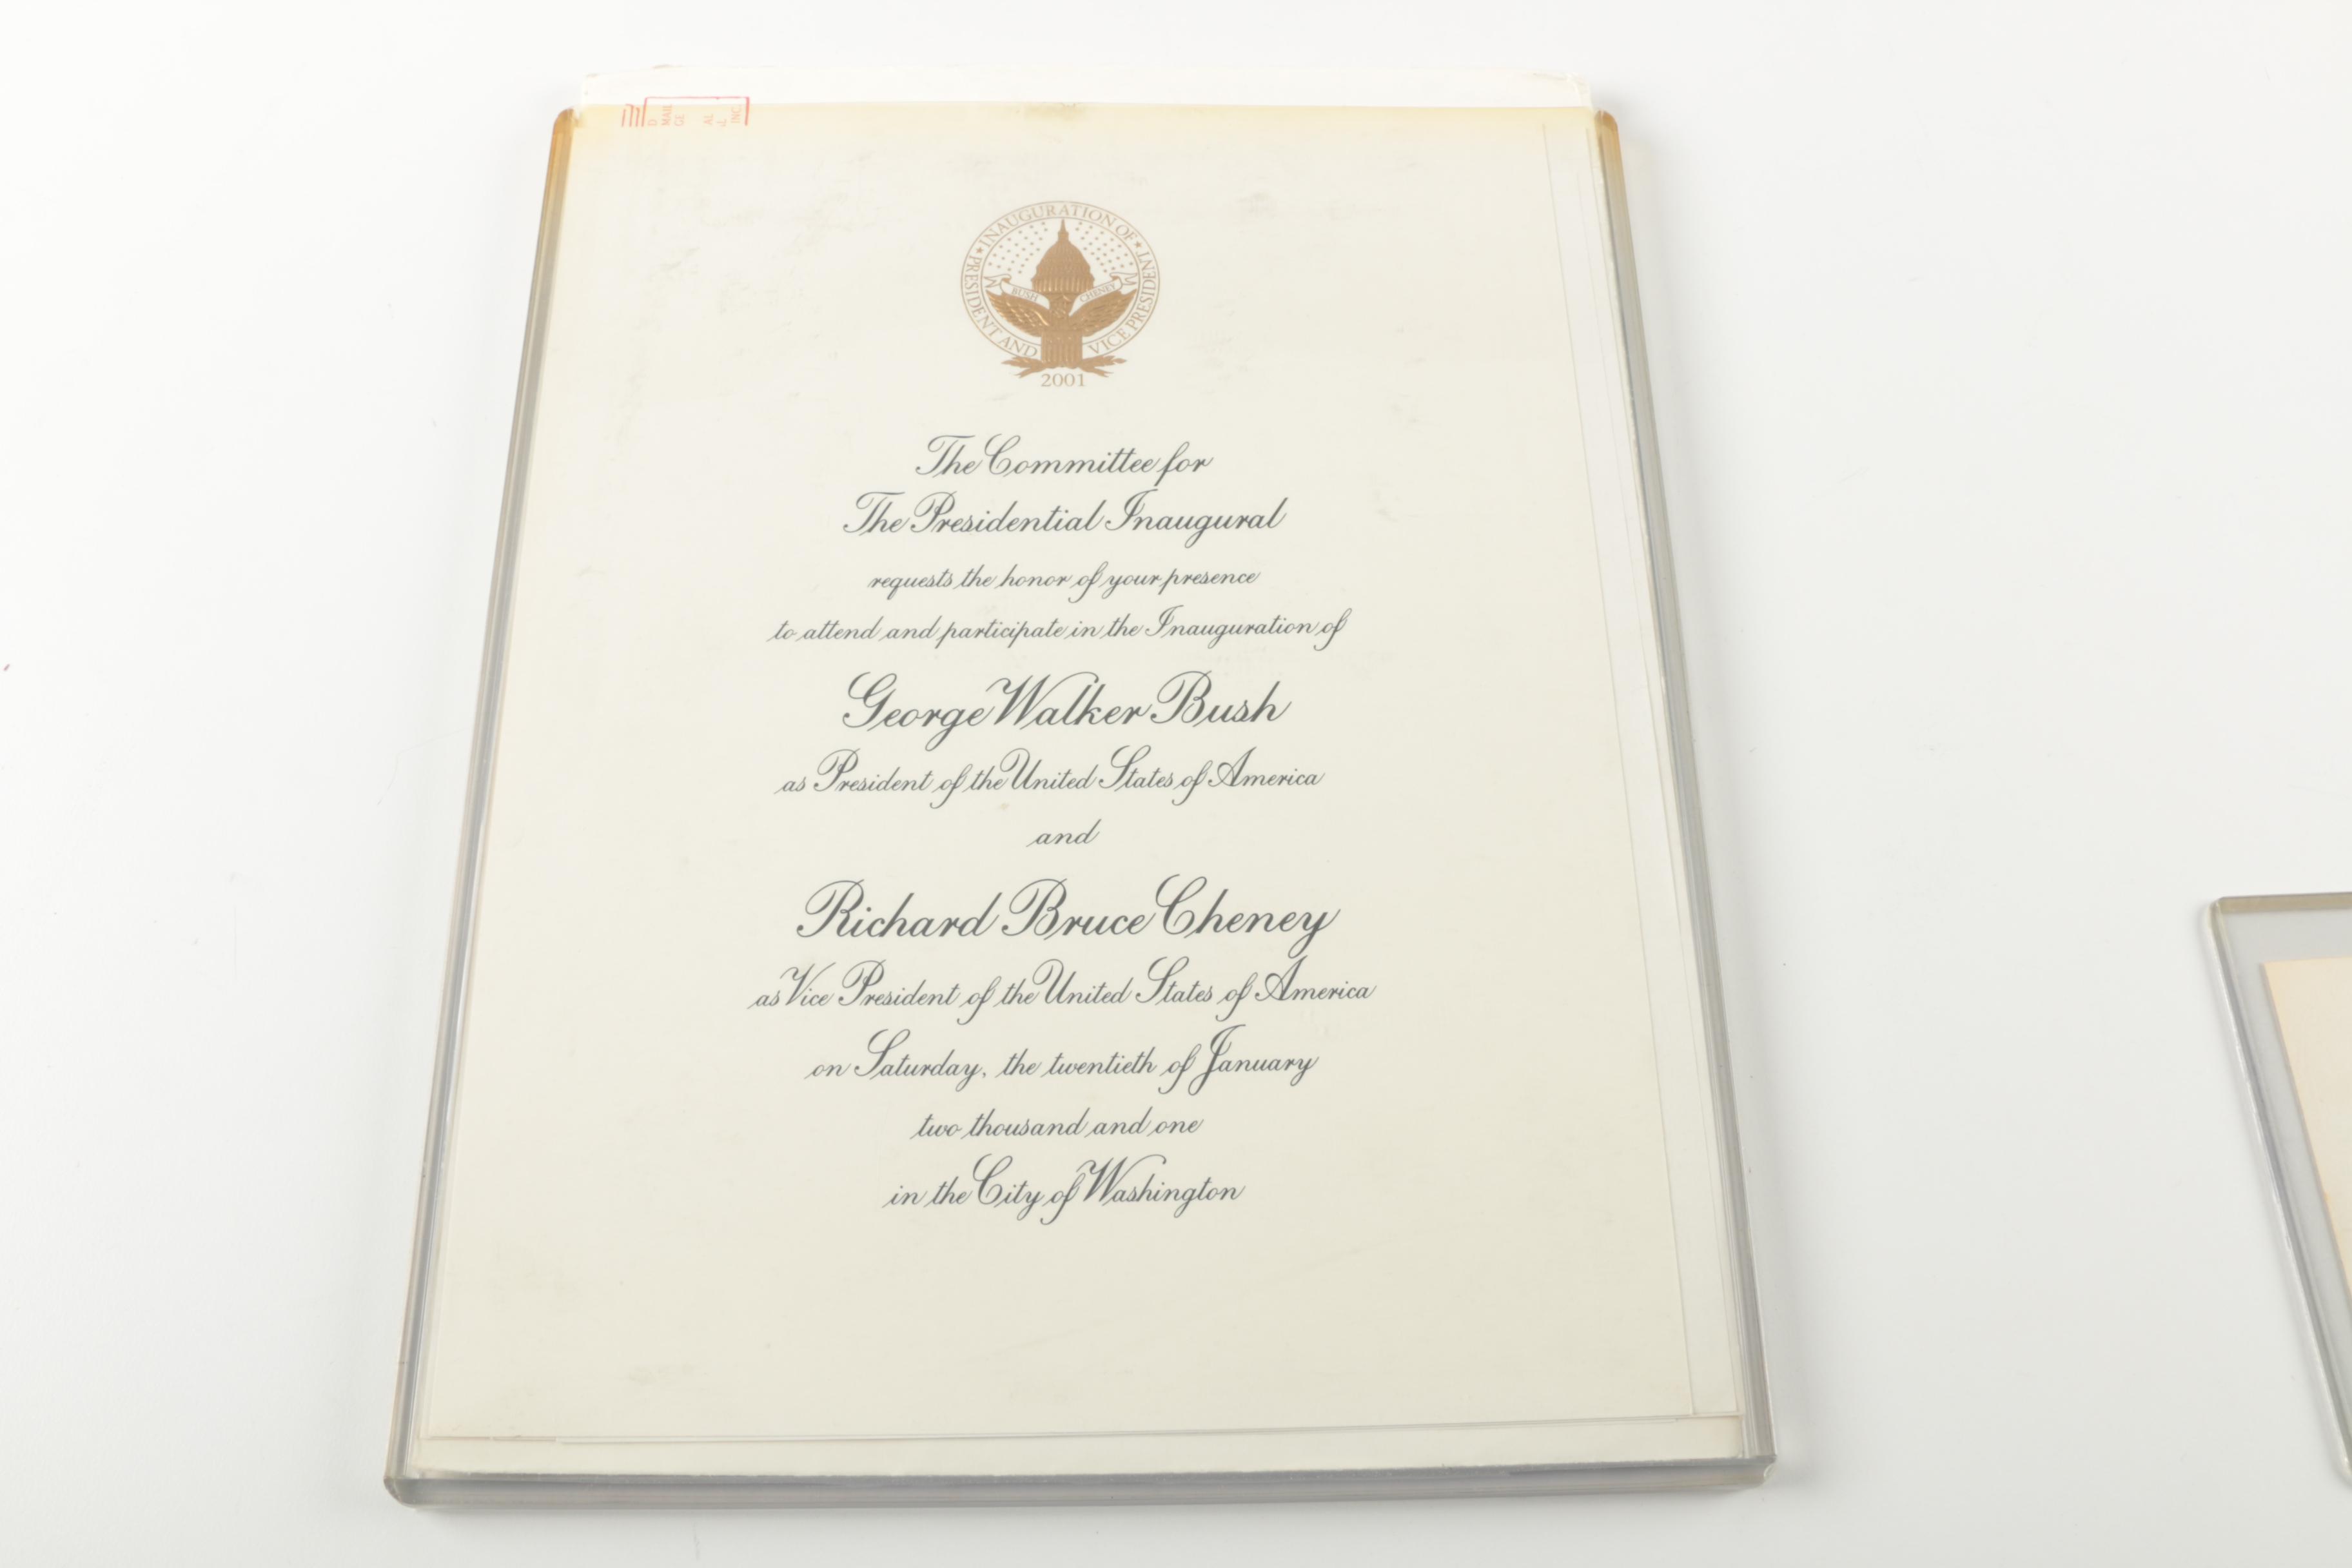 D MAIL GE
AL L INC.
INAUGURATION OF
PRESIDENT AND VICE PRESIDENT
BUSH CHENEY
2001
The Committee for
The Presidential Inaugural
requests the honor of your presence
to attend and participate in the Inauguration of
George Walker Bush
as President of the United States of America
and
Richard Bruce Cheney
as Vice President of the United States of America
on Saturday, the twentieth of January
two thousand and one
in the City of Washington